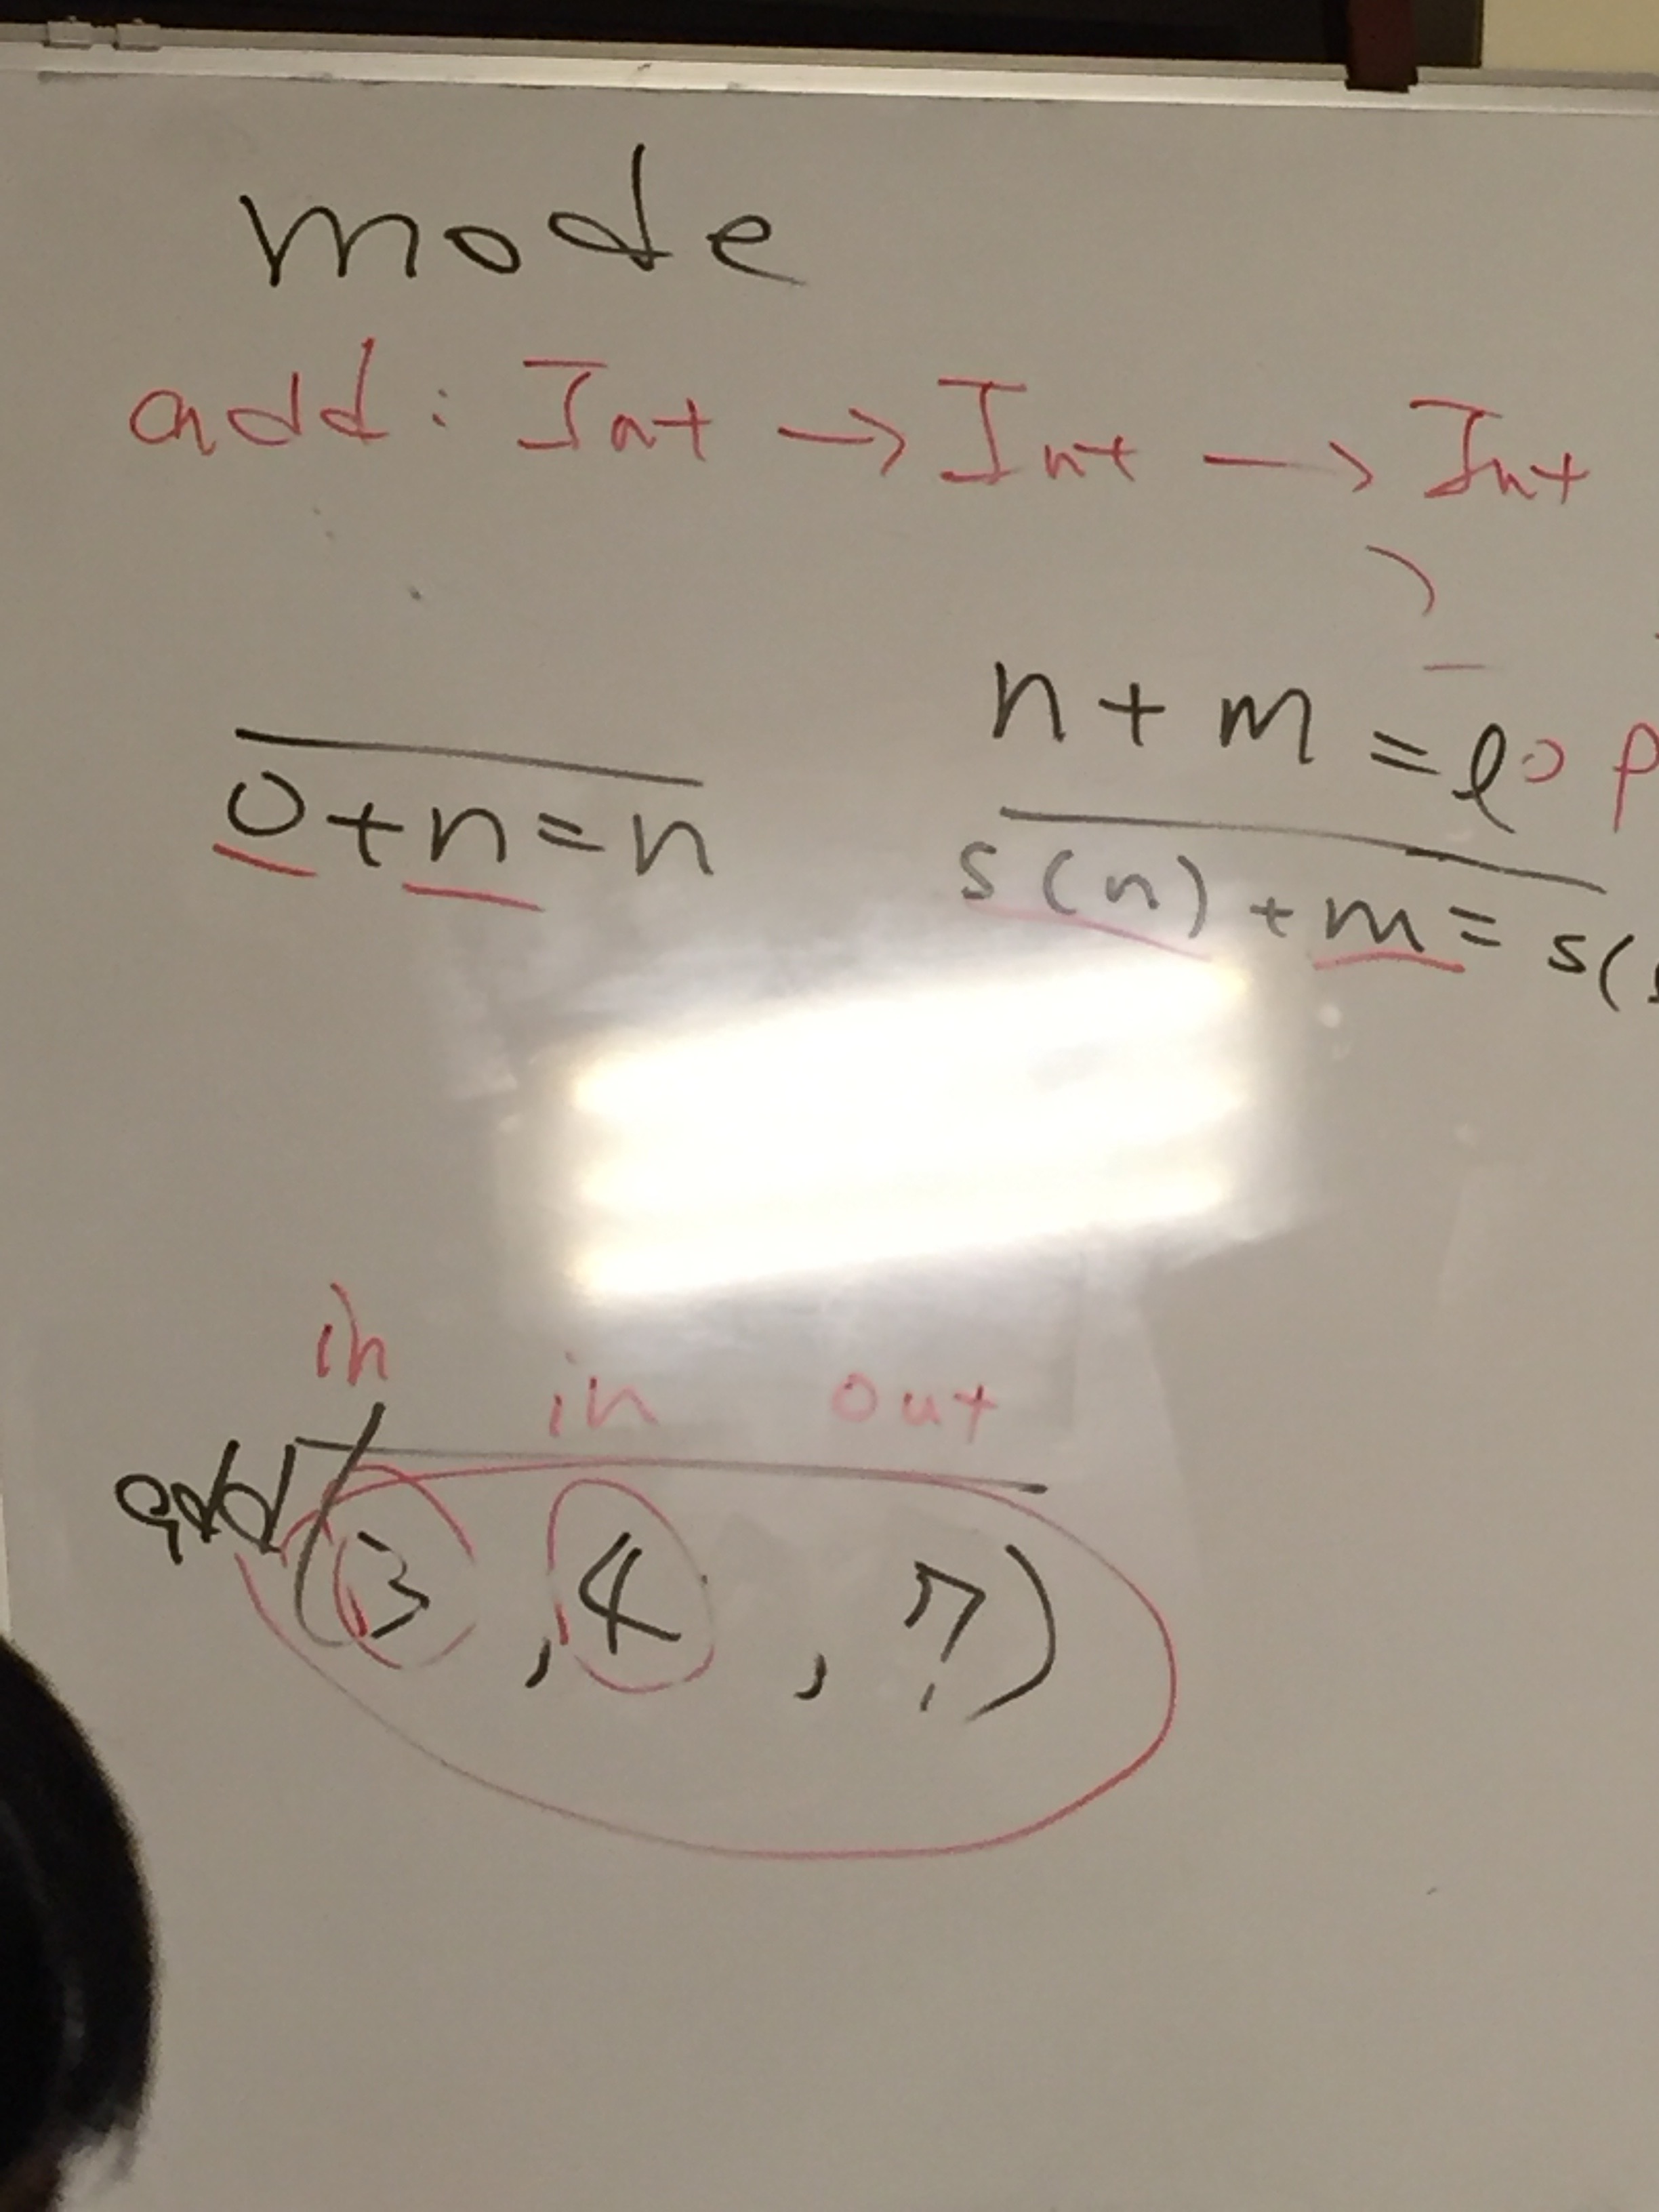 mode
add : Int → Int → Int
n + m = l
0 + n = n
s(n) + m = s(
in in out
add(3, 4, ?)